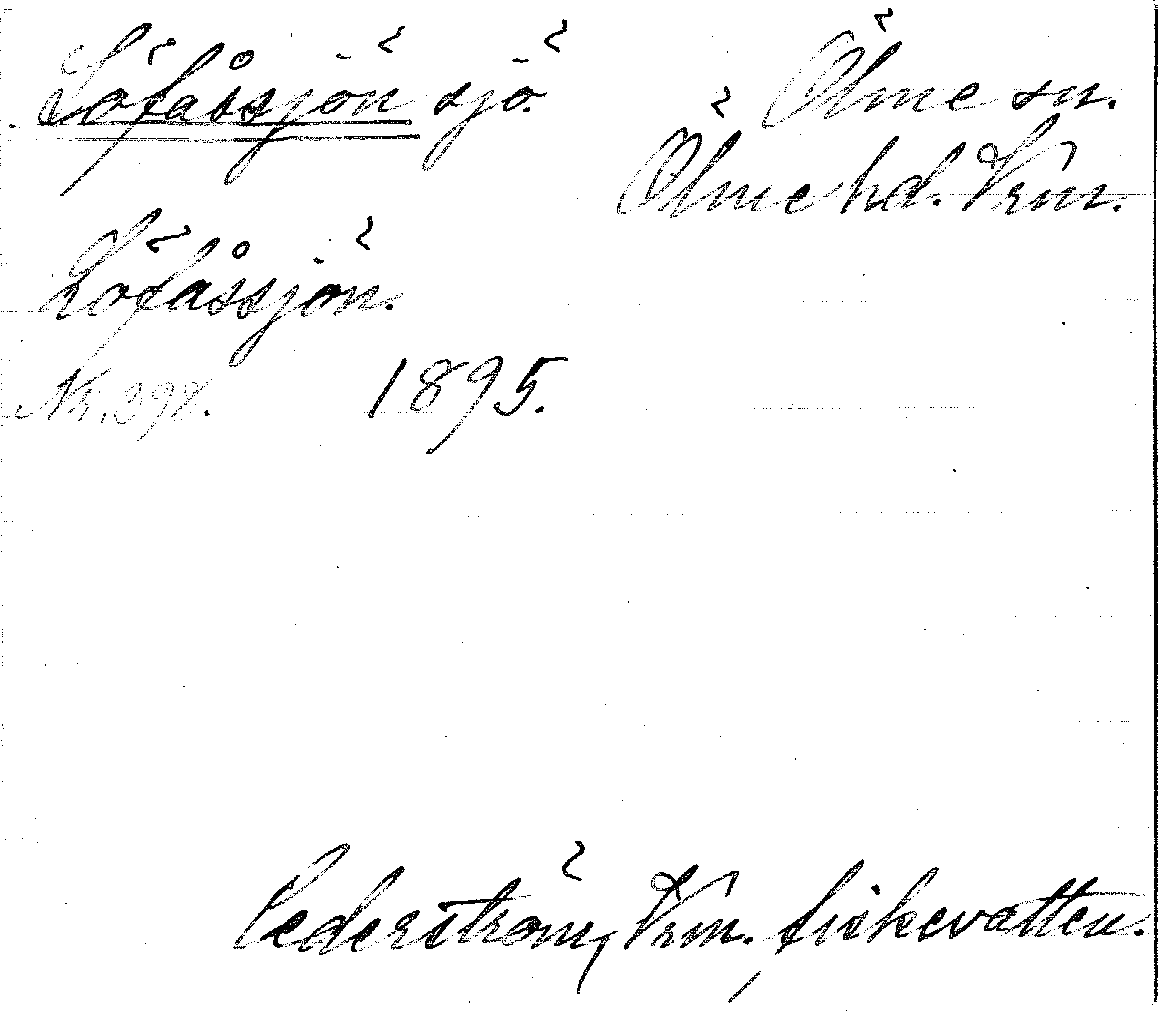 Löfåssjön sjö. Ölme sn.
Ölme hd. Vrm.
Löfåssjön.
Nr. 398. 1895.
Cederström, Vrm. fiskevatten.